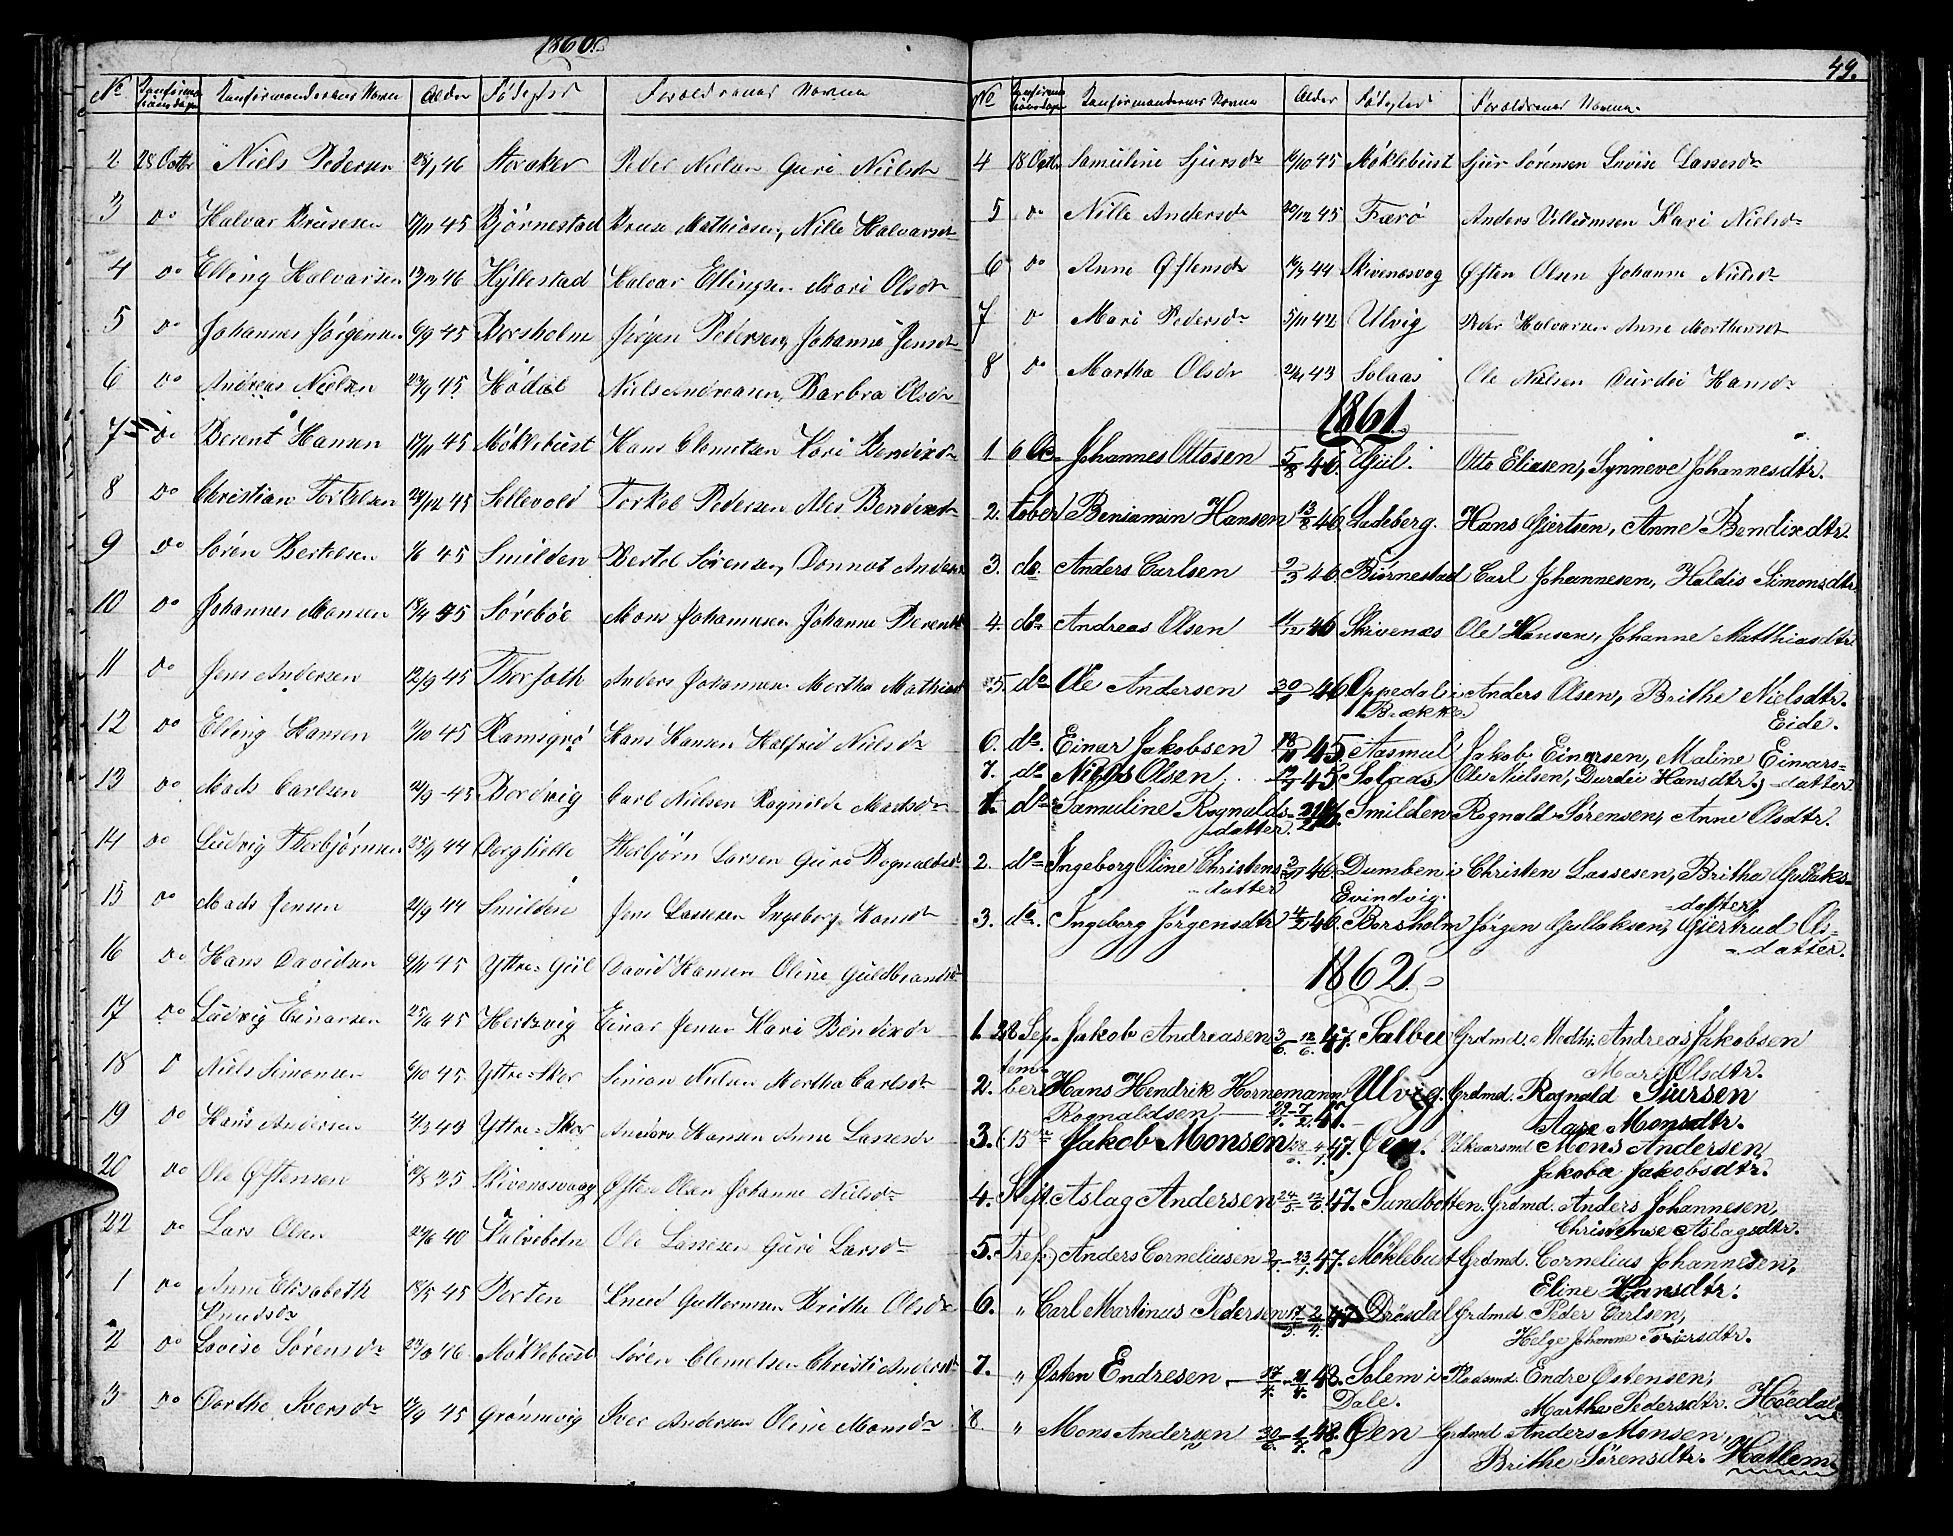 1860.
No Confirmationsdagen Confirmandernes Navne Alder Fødested Forældrenes Navne
2 28 Octbr Niels Pedersen 28/1 46 Storaker Peder Nielsen Guri Nielsdr
3 Do Halvar Brusesen 17/11 45 Bjørnestad Bruse Mathiesen, Nille Halvarsdr
4 Do Elling Halvarsen 46 Hyllestad Halvar Ellingsen Mari Olsdr
5 Do Johannes Jørgensen 6/9 45 Borsholm Jørgen Pedersen, Johanne Jensdr
6 Do Andreas Nielsen 23/9 45 Hødal Niels Andreasen, Barbra Olsdr
7 Do Berent Hansen 17/11 45 Møklebust Hans Clemetsen Kari Bendixdr
8 Do Christian Torkelsen 29/12 45 Sellevold Torkel Pedersen Ales Bendixdr
9 Do Søren Bertelsen 1/6 45 Smilden Bertel Sørensen, Donnat Anders
10 Do Johannes Monsen 18/9 45 Sørebøe Mons Johannesen Johanne Berentsd
11 Do Jens Andersen 12/9 45 Thorsath Anders Johannesen Martha Mathiasd
12 Do Elling Hansen 7/10 45 Ramsgrø Hans Hansen Halfrid Nielsdr
13 Do Mads Carlsen 24/9 45 Bordvig Carl Nielsen Ragnilde Madsdr
14 Do Ludvig Thorbjørnsen 25/9 44 Thorbjørn Larsen Guro Rognaldsdr
15 Do Mads Jensen 21/9 44 Smilden Jens Lassesen Ingeborg Hansdr
16 Do Hans Davidsen 9/11 45 Yttre-Giil David Hansen Oline Guldbrandsdr
17 Do Ludvig Einarsen 25/6 45 Hertzvig Einar Jensen Kari Bendixdr
18 D Niels Simonsen 9/10 45 Yttre-Skor Simon Nielsen Martha Carlsdr
19 Do Hans Andersen 1/3 43 Yttre-Skor Anders Hansen Anne Lassesdr
20 Do Ole Østensen 12/8 35 Skivenesvaag Østen Olsen Johanne Nielsdr
22 Do Lars Olsen 22/6 40 Kalvebotn Ole Lassesen Guri Larsdr
1 Do Anne Elisabeth 18/5 45 Porten Knud Guttormsen Brithe Olsdr
Knudsdr
2 Do Lovise Sørensdr 23/3 46 Møklebust Søren Clemetsen Christi Andersdr
3 Do Dorthe Iversdr 12/9 45 Grønevig Iver Andersen Oline Monsdr
49.
No Confirmationsdagen Confirmandernes Navne Alder Fødested Forældrenes Navne
4 18 Octbr Samuline Sjursdr 16/10 45 Møklebust Sjur Sørensen Lovise Lassesdr
5 Do Nille Andersdr 30/12 45 Færø Anders Villumsen Kari Nielsdr
6 Do Anne Østensdr 16/3 44 Skivenesvaag Østen Olsen Johanne Nielsdr
7 D Mari Pedersdr 5/11 42 Ulvig Peder Halvarsen Anne Morthensdr
8 Do Martha Olsdr 24/4 43 Solaas Ole Nielsen Durdei Hansdr
1861.
1 6 Oc- Johannes Ottosen 5/8 46. Giil. Otto Eliasen, Synneve Johannesdtr.
2. tober Beniamin Hansen 13/8 46. Ladeberg. Hans Giertsen, Anne Bendixdtr.
3. do. Anders Carlsen 2/3 46. Biørnestad Carl Johannesen, Haldis Simonsdtr.
4. do Andreas Olsen 11/12 46 Skivenæs Ole Hansen, Johanne Matthiasdtr
5. do Ole Andersen 30/9 46 Oppedal i Anders Olsen, Brithe Nielsdtr.
Brekke Eide.
6. do. Einar Jakobsen 18/10 45. Aasmul Jakob Einarsen, Maline Einars-
7. do Niels Olsen 45. Solaas, Ole Nielsen, Durdei Hansdtr.; -datter
1. do Samuline Rognalds- 46. Smilden Rognald Sørensen, Anne Olsdtr.
datter
2. do Ingeborg Oline Christens- 46. Dumben i Christen Lassesen, Britha Gullaks-
-datter Evindvig. -datter
3. do. Ingeborg Jørgensdtr 4/2 46. Borsholm Jørgen Gullaksen, Giertrud Ols-
-datter.
1862.
1. 28 Sep- Jakob Andreasen 3/6.-12/6. 47. Salbu Grdmd. Andreas Jakobsen
tem- Mari Olsdtr.
2. ber Hans Hendrik Hornemann Ulvig. Grdmd. Rognald Siursen
Rognaldsen 29/1.-7/2. 47. Aase Monsdtr.
3. (15de Jakob Monsen 47. Øen. Vilkaarsmd. Mons Andersen,
Jakoba Jakobsdtr.
4. S. eft. Aslag Andersen 24/5-12/6 47. Sundbotten. Grdmd. Anders Johannesen,
Christense Aslagsdtr.
5. Tref.) Anders Corneliusen 2/1.-23/1. 47. Møklebust Grdmd. Cornelius Johannesen,
Eline Hansdtr.
6. " Carl Martinus Pedersen 17/3 2/4. 47. Drøsdal Grdmd. Peder Carlsen,
Helge Johanne Toresdtr.
7. " Østen Endresen, 17/4.-21/4. 48. Solem i Pladsmd. Endre Østensen,
Dale. Martha Pedersdtr. Høedal
8. " Mons Andersen 30/6.-1/7. 48. Øen Grdmd Anders Monsen,
Brithe Sørensdtr. Hatlem